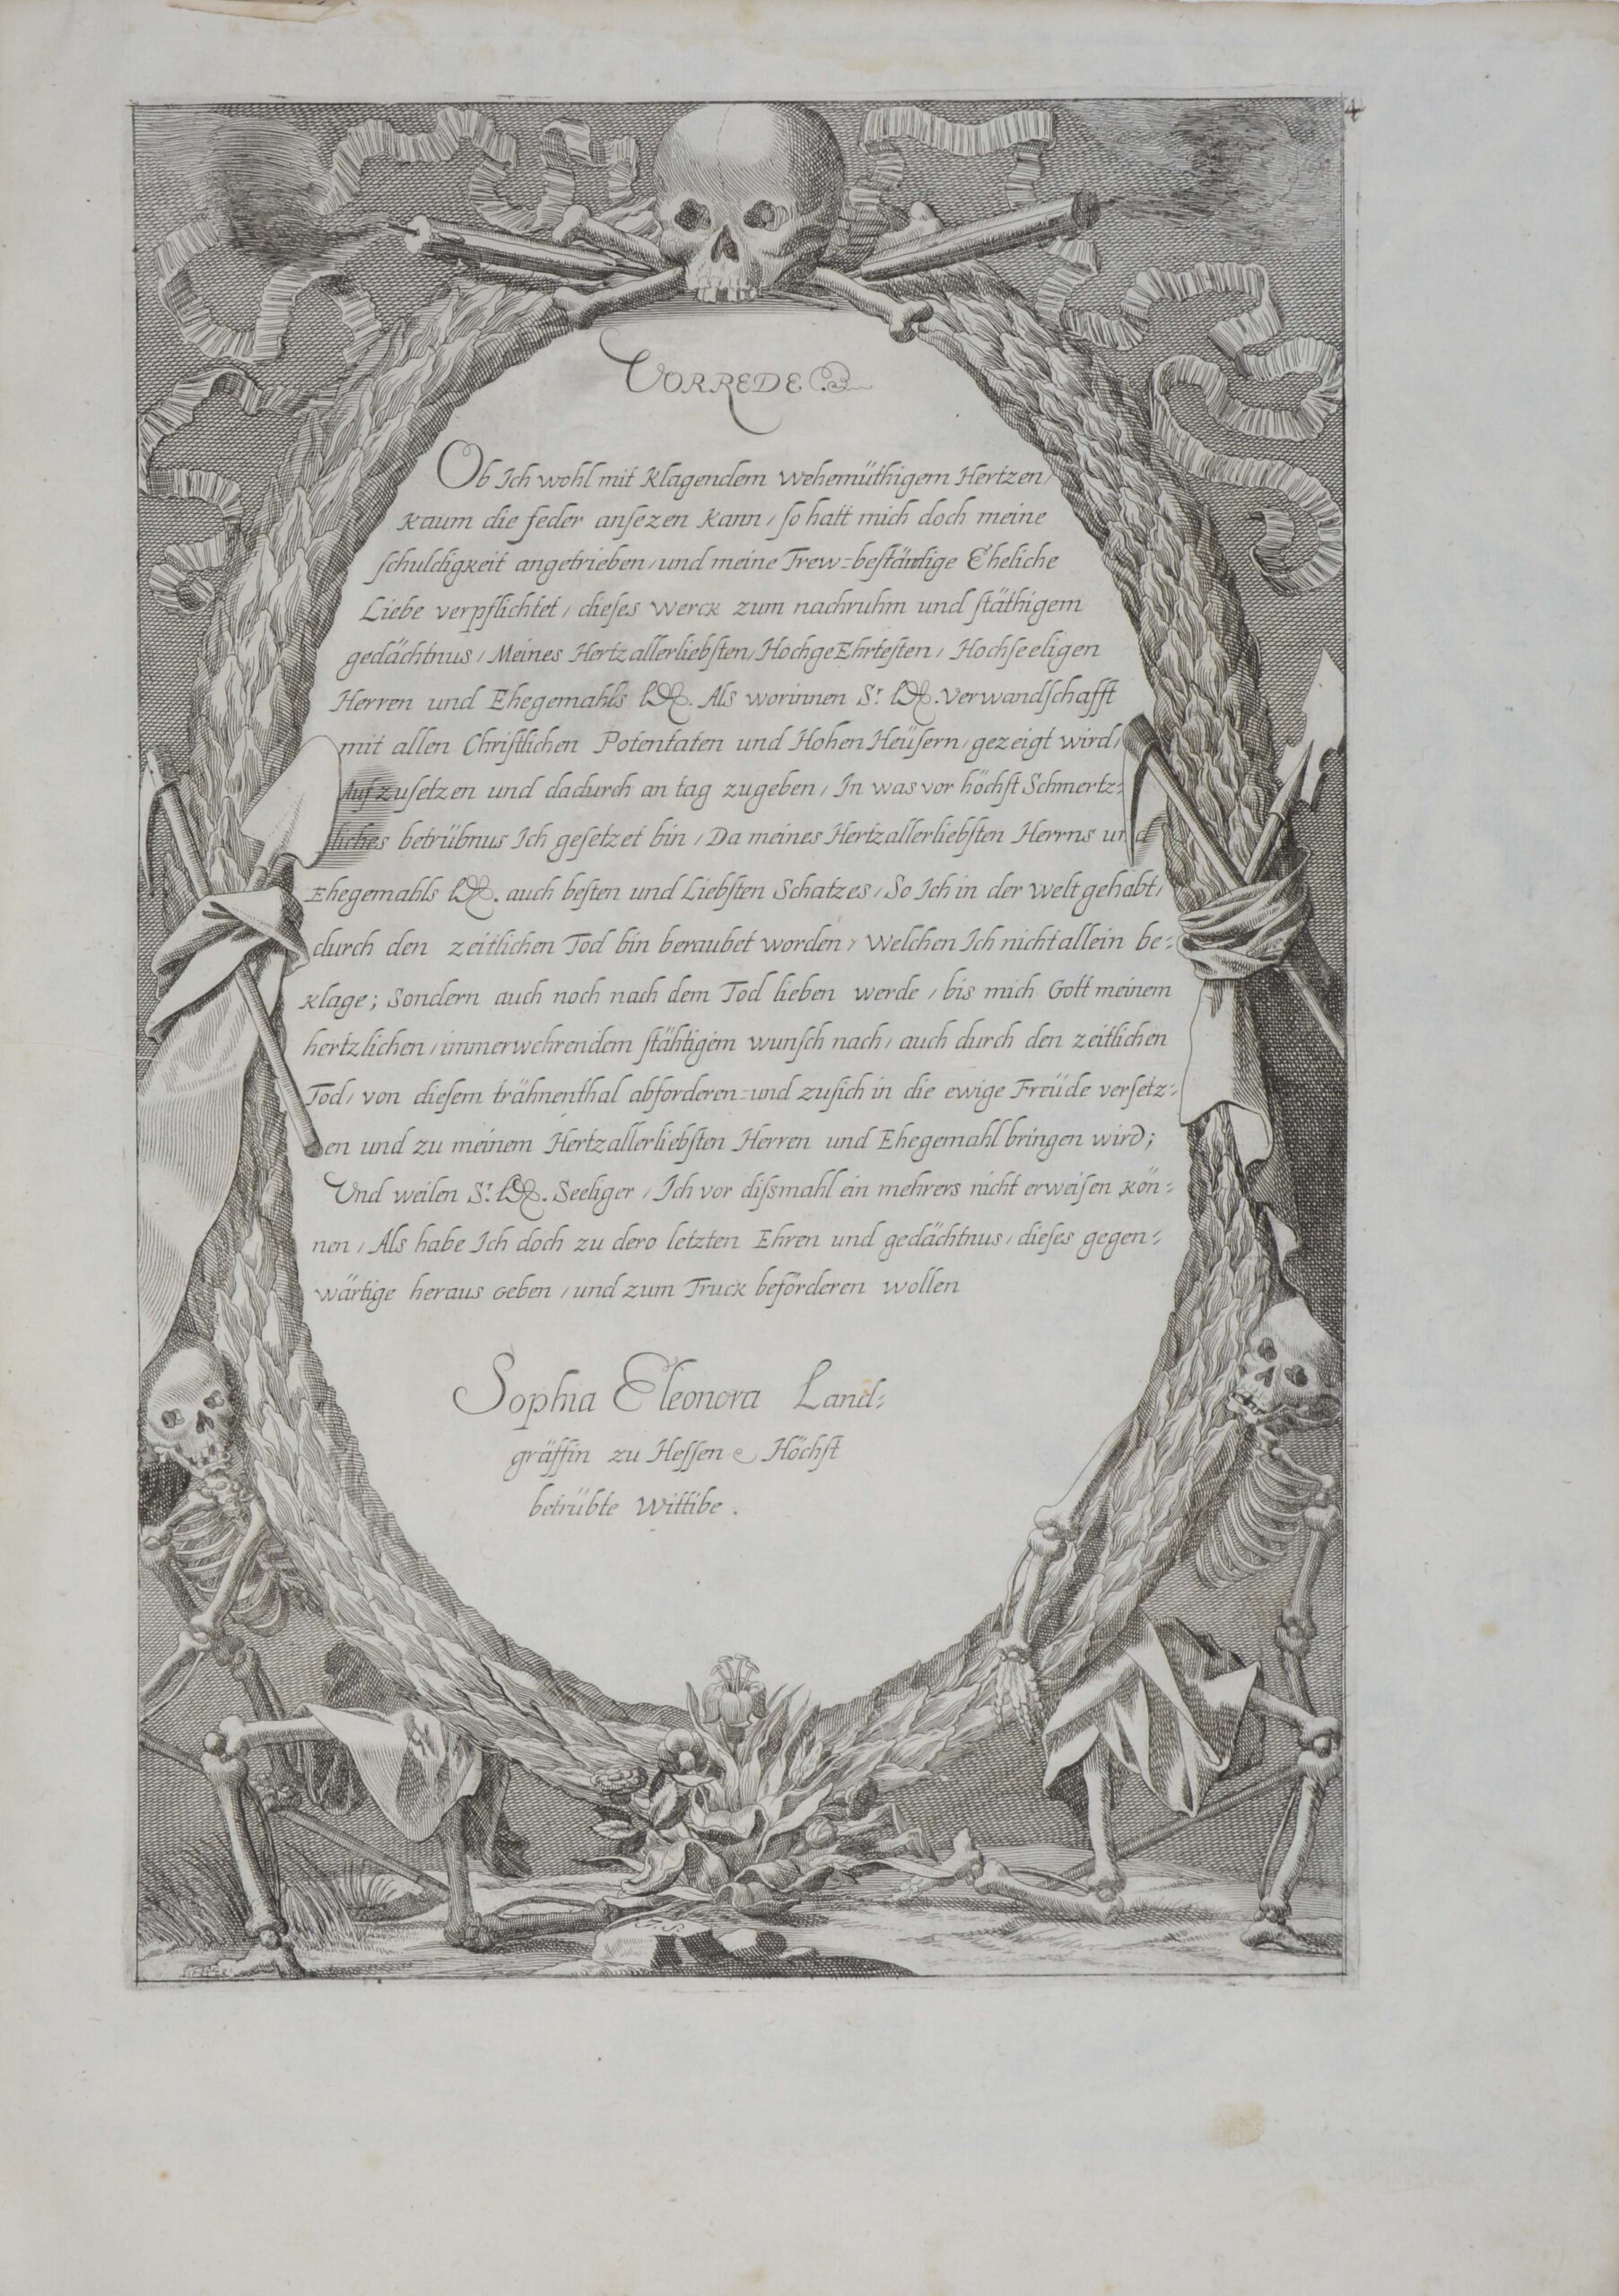 4
VORREDE
Ob Ich wohl mit Klagendem wehemüthigem Hertzen/
kaum die feder anſezen kann / ſo hatt mich doch meine
ſchuldigkeit angetrieben / und meine Trew=beſtändige Eheliche
Liebe verpflichtet / dieſes werck zum nachruhm und ſtäthigem
gedächtnus / Meines Hertzallerliebſten / HochgeEhrteſten / Hochſeeligen
Herren und Ehegemahls . Als worinnen Sr. . Verwandſchafft
mit allen Chriſtlichen Potentaten und Hohen Heüſern / gezeigt wird /
Aufzuſetzen und dadurch an tag zugeben / In was vor höchſt Schmertz=
liches betrübnus Ich geſetzet bin / Da meines Hertzallerliebſten Herrns und
Ehegemahls . auch beſten und Liebſten Schatzes / So Ich in der welt gehabt /
durch den zeitlichen Tod bin beraubet worden / Welchen Ich nicht allein be=
klage ; Sondern auch noch nach dem Tod lieben werde / bis mich Gott meinem
hertzlichen / immerwehrendem ſtähtigem wunſch nach / auch durch den zeitlichen
Tod / von dieſem trähnenthal abforderen=und zuſich in die ewige Freüde verſetz=
en und zu meinem Hertzallerliebſten Herren und Ehegemahl bringen wird ;
Und weilen Sr. . Seeliger / Ich vor diſsmahl ein mehrers nicht erweiſen kön=
nen / Als habe Ich doch zu dero letzten Ehren und gedächtnus / dieſes gegen=
wärtige heraus geben / und zum Truck beförderen wollen
Sophia Eleonora Land=
gräffin zu Heſſen Höchſt
betrübte Wittibe .